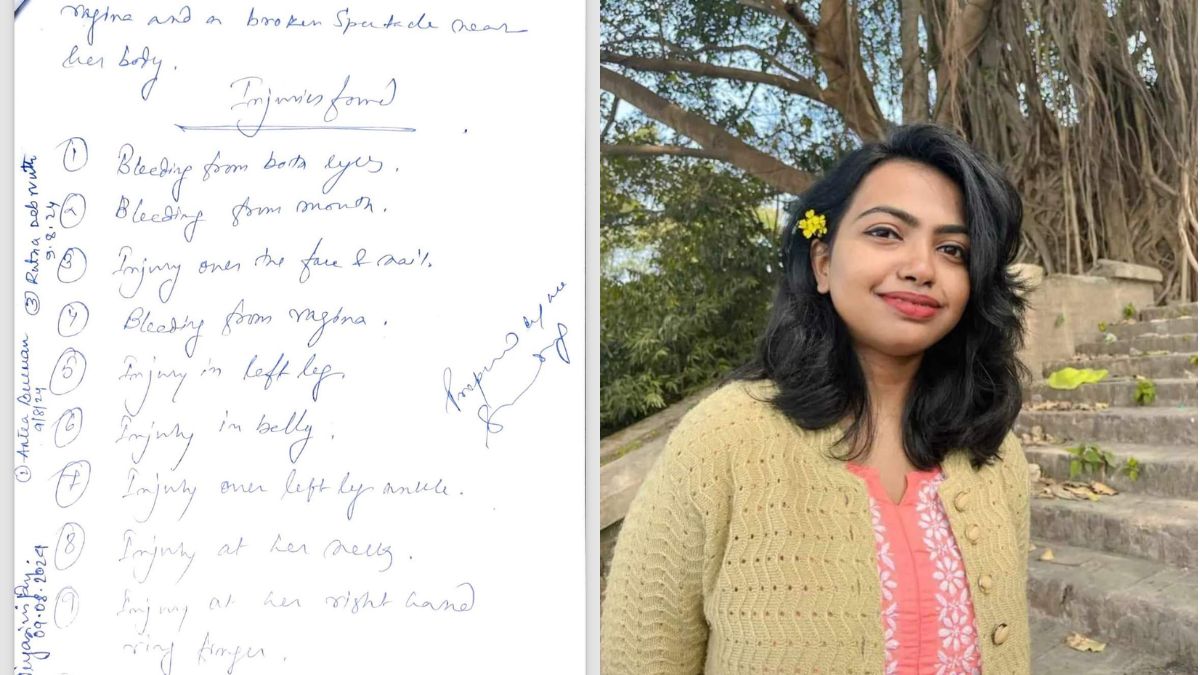 vagina and a broken Spectacle near
her body.
Injuries found
1 Bleeding from both eyes.
2 Bleeding from mouth.
3 Injury over the face & nail.
4 Bleeding from vagina.
5 Injury in left leg.
6 Injury in belly.
7 Injury over left leg ankle.
8 Injury at her neck.
9 Injury at her right hand
ring finger.
Prepared by me
3 Ratna Debnath
9.8.24
1
9/8/24
09.08.2024